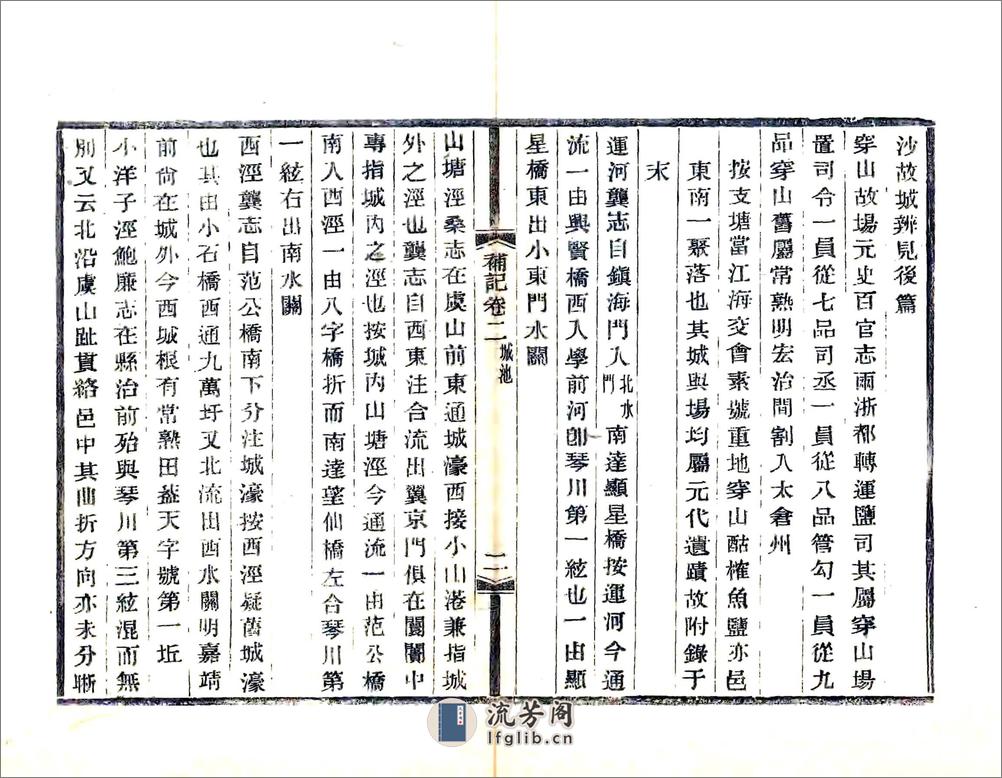 沙故城辨見後篇
穿山故場元史百官志兩浙都轉運鹽司其屬穿山場
置司令一員從七品司丞一員從八品管勾一員從九
品穿山舊屬常熟明宏治間割入太倉州
按支塘當江海交會素號重地穿山酤榷魚鹽亦邑
東南一聚落也其城與場均屬元代遺蹟故附錄于
末
運河龔志自鎮海門入北水門南達顯星橋按運河今通
流一由興賢橋西入學前河卽琴川第一絃也一由顯
星橋東出小東門水關
補記卷二 城池 二
山塘涇桑志在虞山前東通城濠西接小山港兼指城
外之涇也龔志自西東注合流出翼京門俱在闤闠中
專指城內之涇也按城內山塘涇今通流一由范公橋
南入西涇一由八字橋折而南達望仙橋左合琴川第
一絃右出南水關
西涇龔志自范公橋南下分注城濠按西涇疑舊城濠
也其由小石橋西通九萬圩又北流出西水關明嘉靖
前尙在城外今西城根有常熟田葢天字號第一坵
小洋子涇鮑廉志在縣治前殆與琴川第三絃混而無
別又云北沿虞山趾貫絡邑中其曲折方向亦未分晰
流芳阁
lfglib.cn